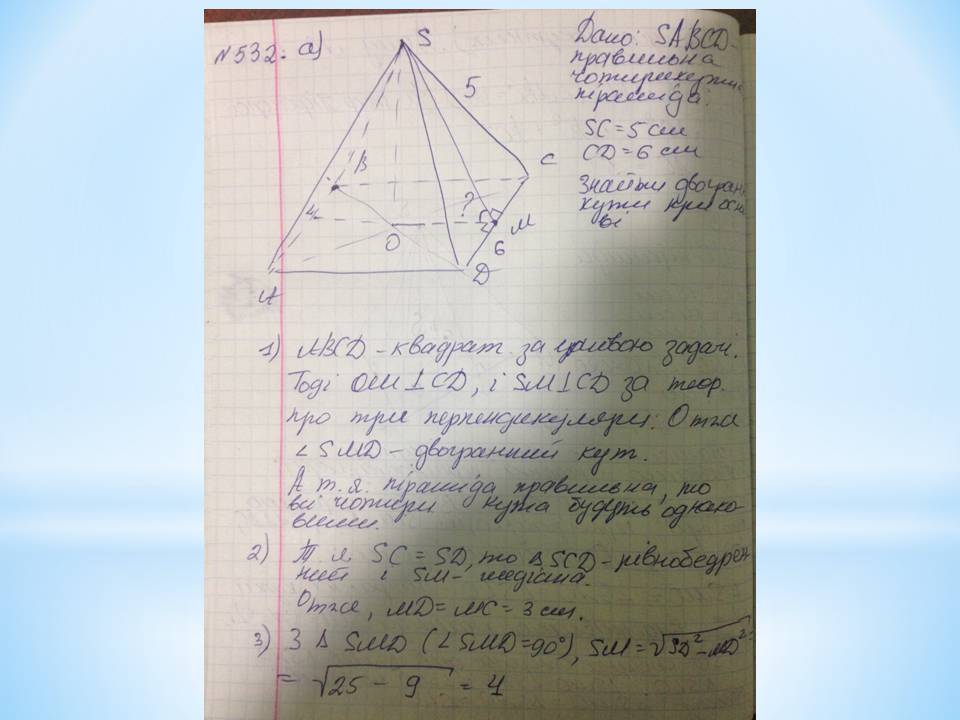 N532. a)
S
5
B
C
?
M
O
6
D
A
Дано: SABCD-
правильна
чотирикутна
піраміда.
SC = 5 см
CD = 6 см
Знайти двогран
кути при осно
ві
1) ABCD - квадрат за умовою задачі.
Тоді OM ⊥ CD, і SM ⊥ CD за теор.
про три перпендикуляри. Отже
∠SMD - двогранний кут.
А т.я. піраміда правильна, то
всі чотири кута будуть однако-
вими.
2) Т.я. SC = SD, то ΔSCD - рівнобедрен-
ний і SM - медіана.
Отже, MD = MC = 3 см.
3) З Δ SMD (∠SMD=90°), SM = √SD² - MD² =
= √25 - 9 = 4